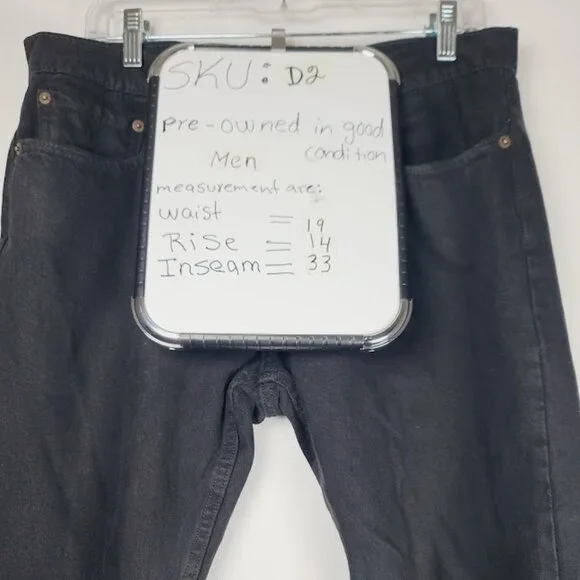 SKU: D2
pre-owned in good
Men condition
measurement are:
waist = 19
Rise = 14
Inseam = 33